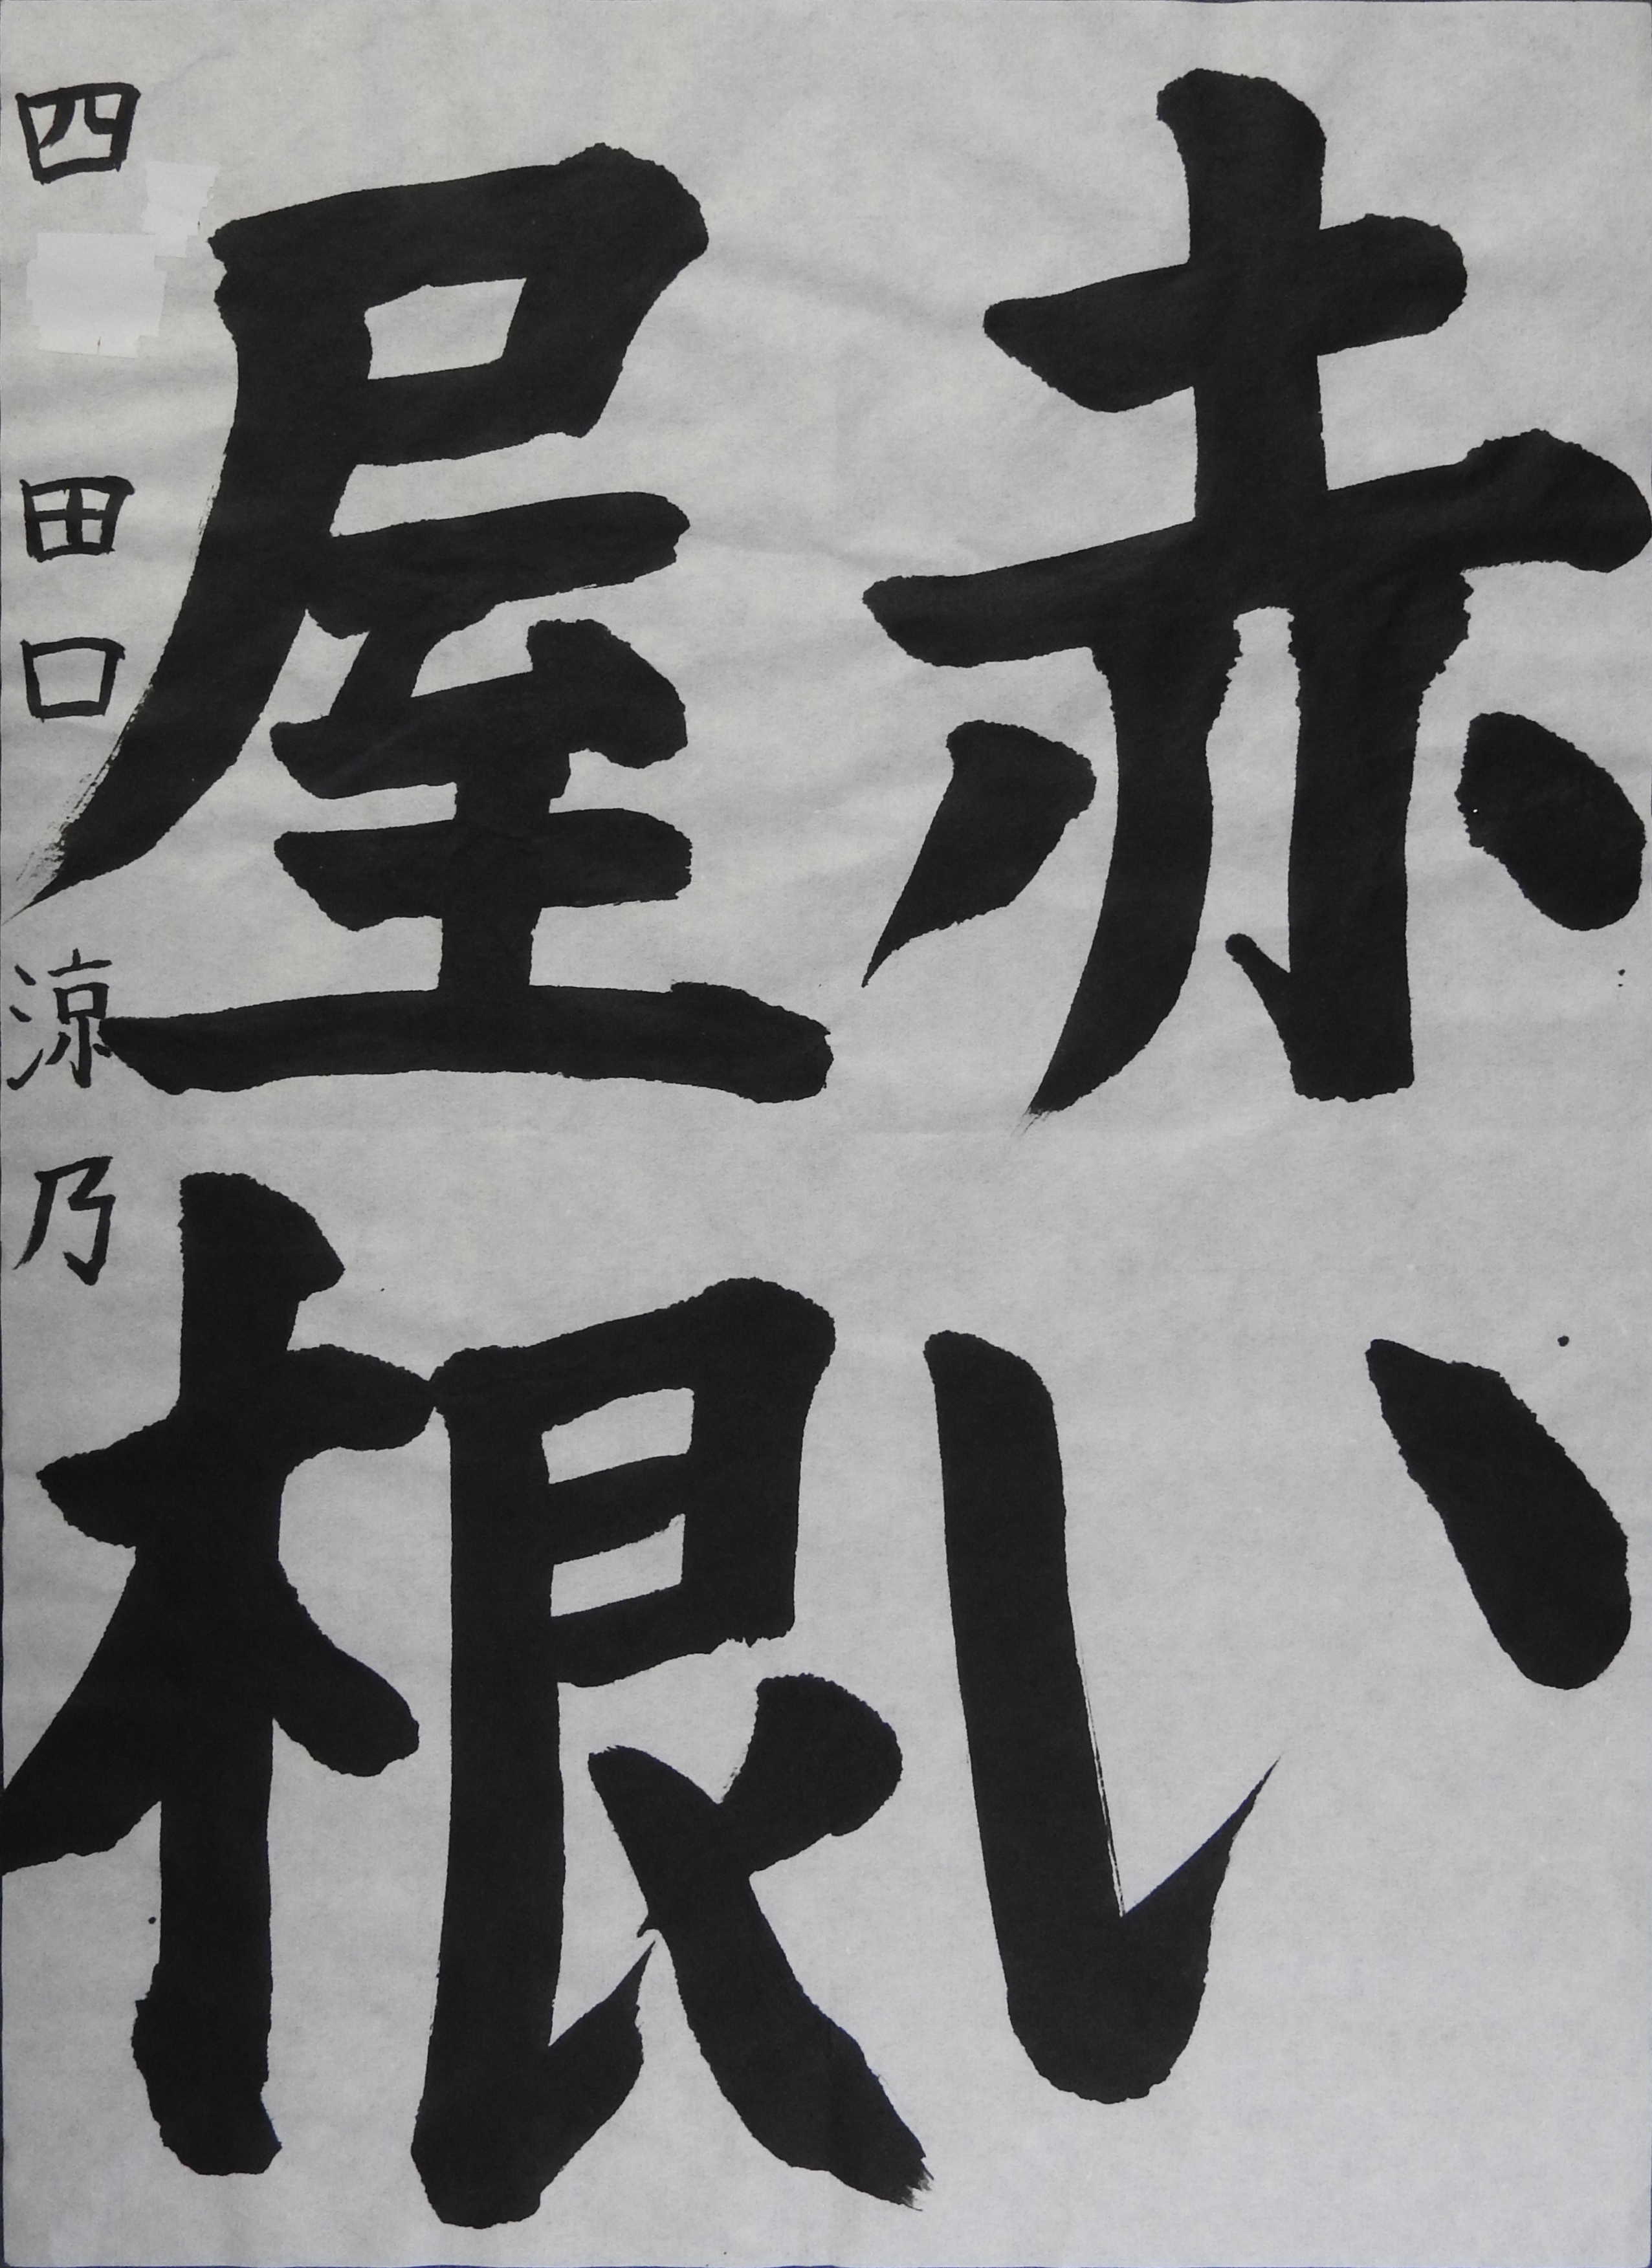 赤い
屋根
四 田口涼乃